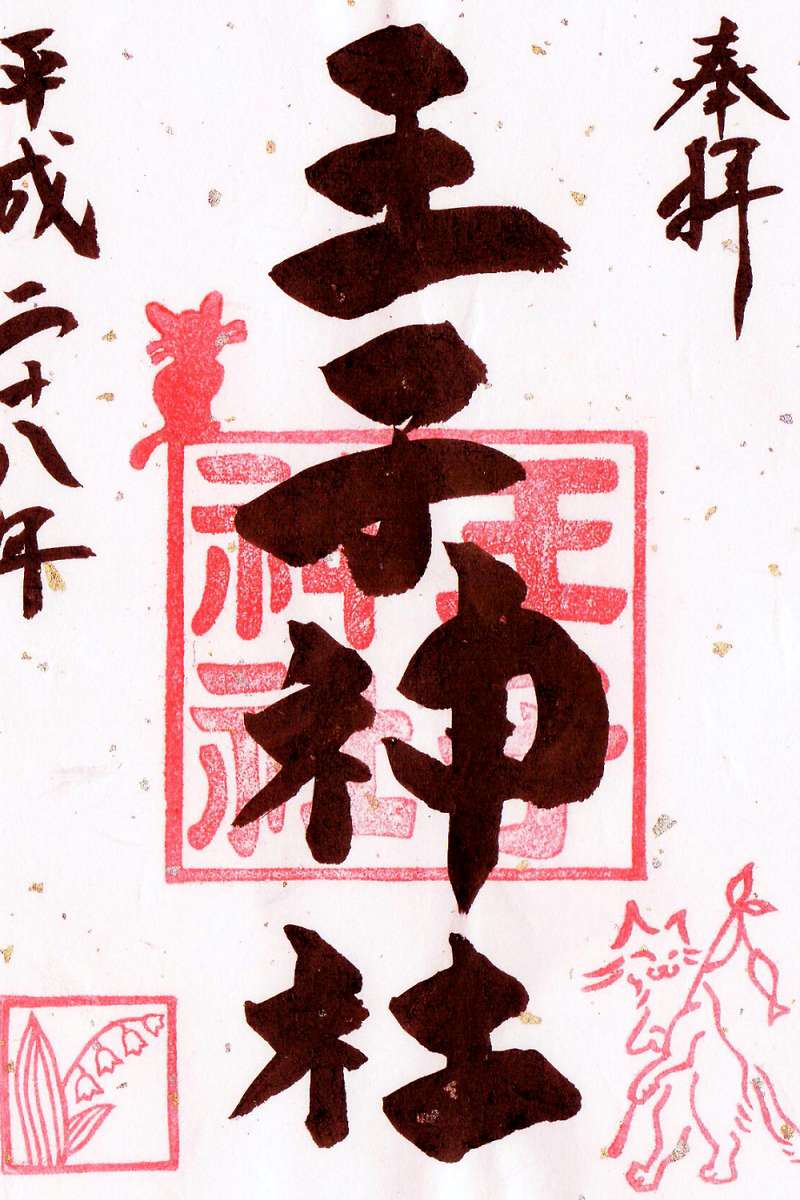 奉拝
王子神社
王子
神社
平成二十八年